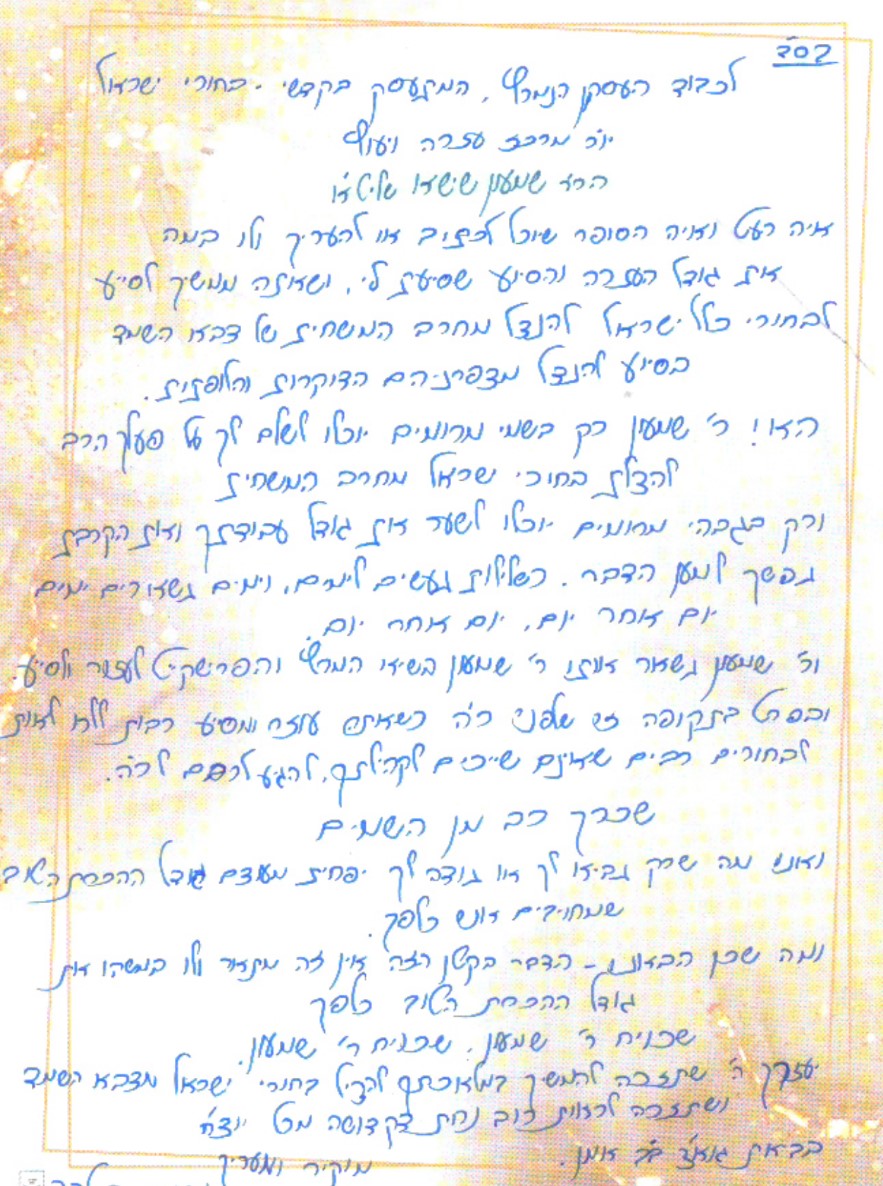 בס"ד
לכבוד העסקן הנמרץ, המתעסק בקדשי - בחורי ישראל
יו"ר מרכז עזרה ויעוץ
הרב שמעון שישא שליט"א
איה העט ואיה הסופר שיוכל לכתוב או להעריך ולו במה
את גודל העזרה והסיוע שסיעת לי, ושאתה ממשיך לסייע
לבחורי כלל ישראל להנצל מחרב המשחית של צבא השמד
בסיוע להנצל מצפרניהם הדוקרות והלופתות.
הא! ר' שמעון רק בשמי מרומים יוכלו לשלם לך על פעלך הרב
להצלת בחורי ישראל מחרב המשחית
ורק בגבהי מרומים יוכלו לשער את גודל עבודתך ואת הקרבת
נפשך למען הדבר. כשלילות נעשים לימים, וימים נשארים ימים
יום אחר יום, יום אחר יום.
ור' שמעון נשאר אותו ר' שמעון בשיא המרץ לעזור ולסייע.
ובפרט בתקופה זו שלפני ר"ה כשאתם עוזר ומסיע רבות ללא לאות
לבחורים רבים שאינם שייכים לקהילתך, להגיע לרבם לר"ה.
שכרך רב מן השמים
ואנו מה שרק נביא לך או נודה לך יפחית מעוצם גודל ההכרת הטוב
שמחויבים אנו כלפך.
ומה שכן הבאנו - הדבר הקטן הזה אין זה מתאר ולו במשהו את
גודל ההכרת הטוב כלפך
שכוייח ר' שמעון, שכוייח ר' שמעון.
יעזרך ה' שתזכה להמשיך במלאכתך להציל בחורי ישראל מצבא השמד
ושתזכה לראות רוב נחת דקדושה מכל יוצ"ח
בביאת גוא"צ בב"א אמן.
מוקיר ומעריך